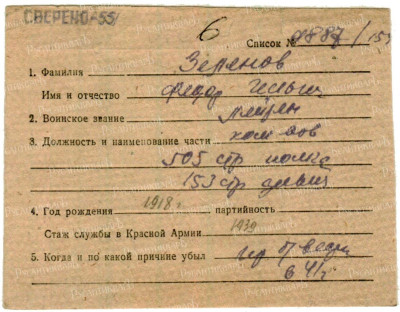 СВЕРЕНО-55
6
Список № 9887/153
1. Фамилия Зерянов
Имя и отчество Федор
2. Воинское звание лейтен
3. Должность и наименование части ком
505 стр полка
153 стр дивиз
4. Год рождения 1918 г партийность
Стаж службы в Красной Армии 1939
5. Когда и по какой причине убыл пр б/вести
в 41 г